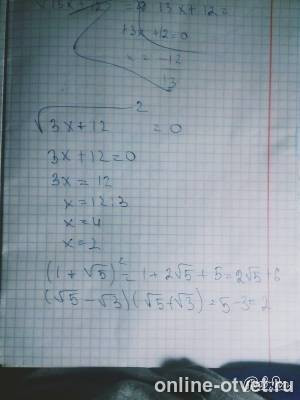 √13x+12 = 13x+12=
13x+12=0
x = -12
13
√3x+12² = 0
3x+12=0
3x = 12
x = 12:3
x = 4
x = 2
(1+√5)² = 1+2√5+5=2√5+6
(√5-√3)(√5+√3)=5-3=2
online-otvet.ru